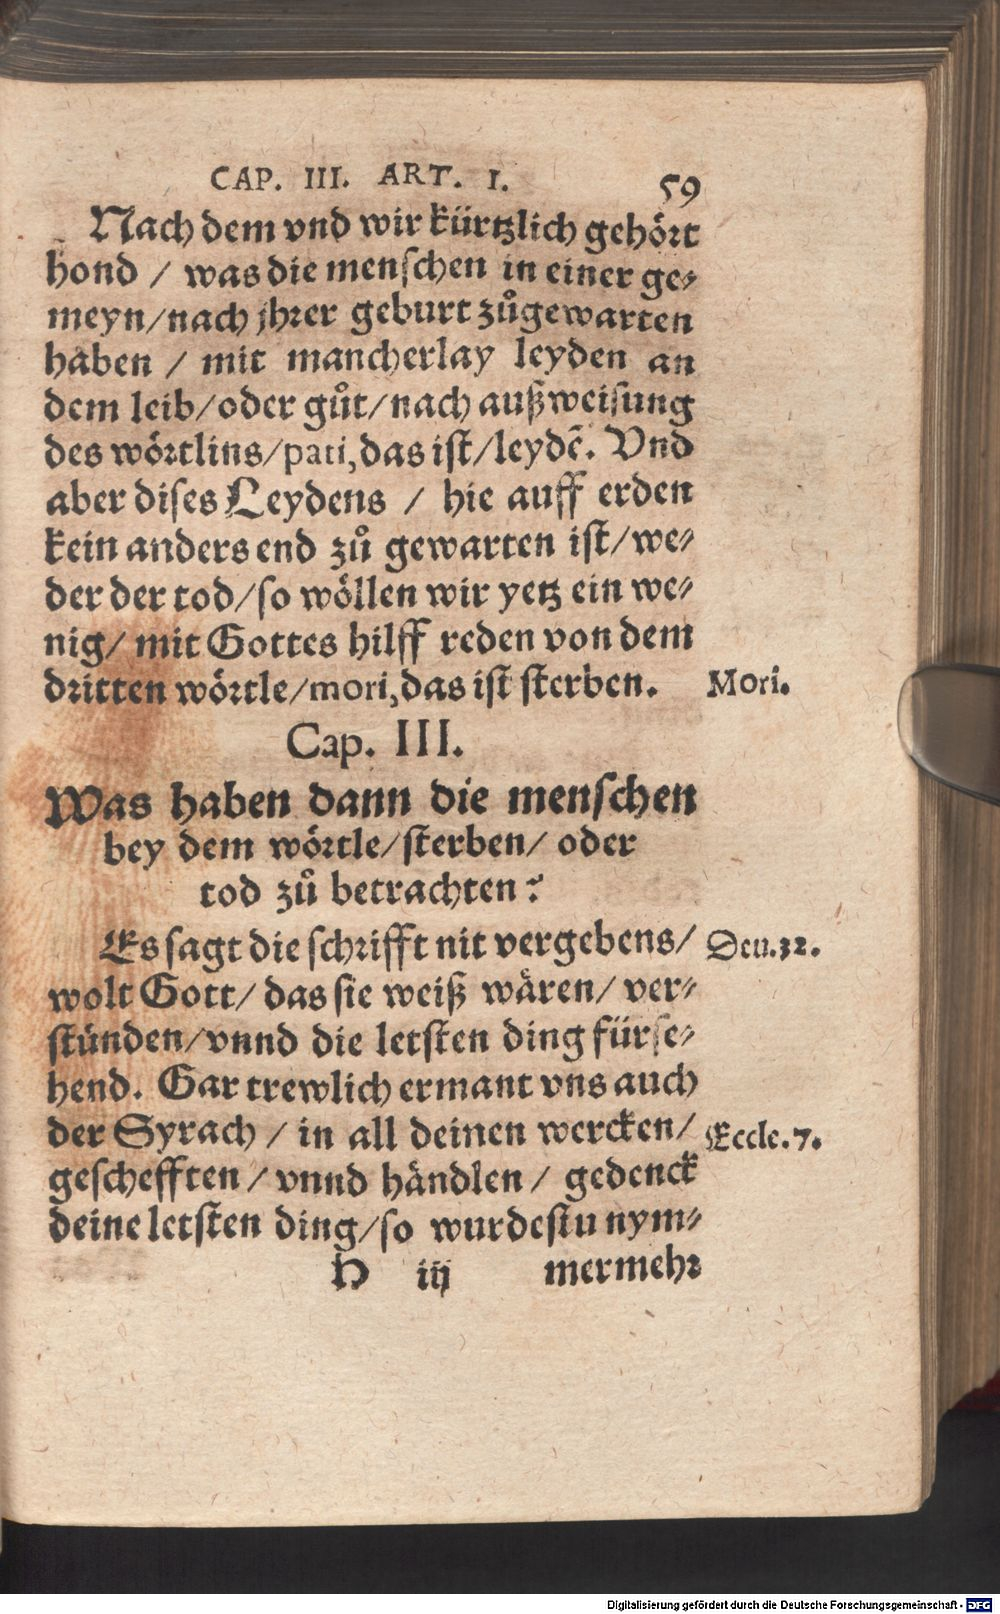 CAP. III. ART. I. 59
Nach dem vnd wir kürtzlich gehört
hond / was die menschen in einer ge-
meyn/nach jhrer geburt zůgewarten
haben / mit mancherlay leyden an
dem leib/oder gůt/nach außweisung
des wörtlins/pati, das ist/leydē. Vnd
aber dises Leydens / hie auff erden
kein anders end zů gewarten ist/we-
der der tod/so wöllen wir yetz ein we-
nig/ mit Gottes hilff reden von dem
dritten wörtle/mori, das ist sterben. Mori.
Cap. III.
Was haben dann die menschen
bey dem wörtle/sterben/ oder
tod zů betrachten?
Es sagt die schrifft nit vergebens/ Deu.32.
wolt Gott/ das sie weiß wären/ ver-
stünden/vnnd die letsten ding fürse-
hend. Gar trewlich ermant vns auch
der Syrach / in all deinen wercken/ Eccle.7.
geschefften / vnnd händlen / gedenck
deine letsten ding/so wurdestu nym-
H iij mermehr
Digitalisierung gefördert durch die Deutsche Forschungsgemeinschaft - DFG